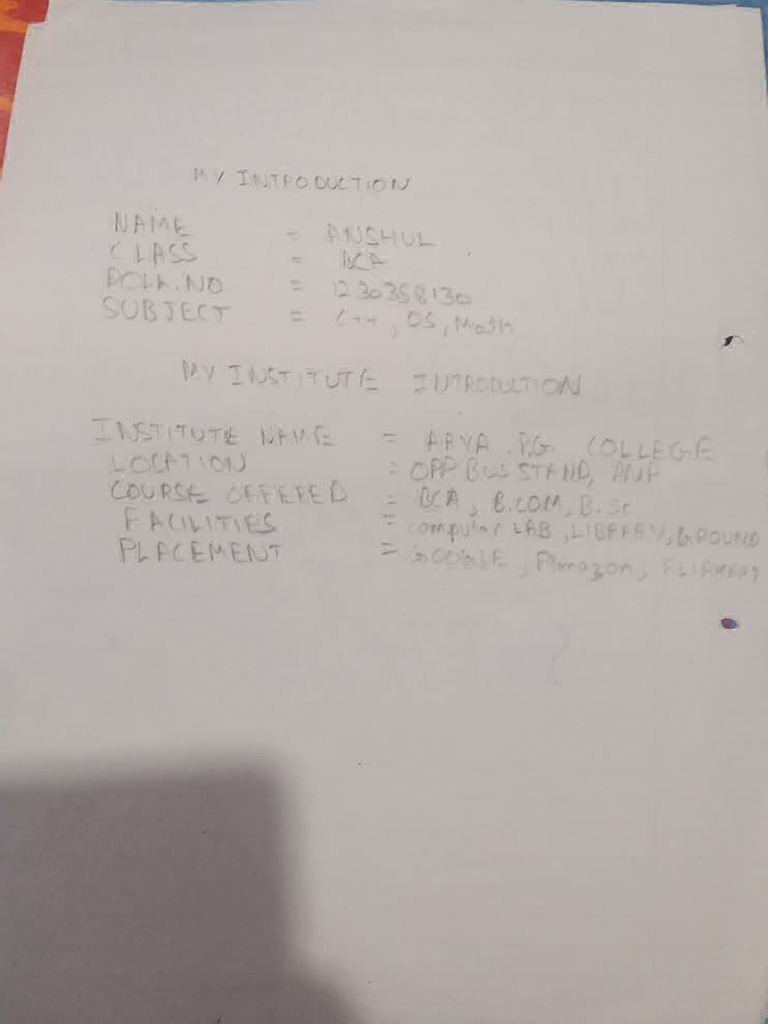 MY INTRODUCTION
NAME = ANSHUL
CLASS = BCA
ROLL.NO = 1230358130
SUBJECT = C++, OS, Math
MY INSTITUTE INTRODUCTION
INSTITUTE NAME = ARYA P.G. COLLEGE
LOCATION = OPP BUS STAND,
COURSE OFFERED = BCA, B.COM, B.Sc
FACILITIES = computer LAB, LIBRARY, GROUND
PLACEMENT = GOOGLE, Amazon,